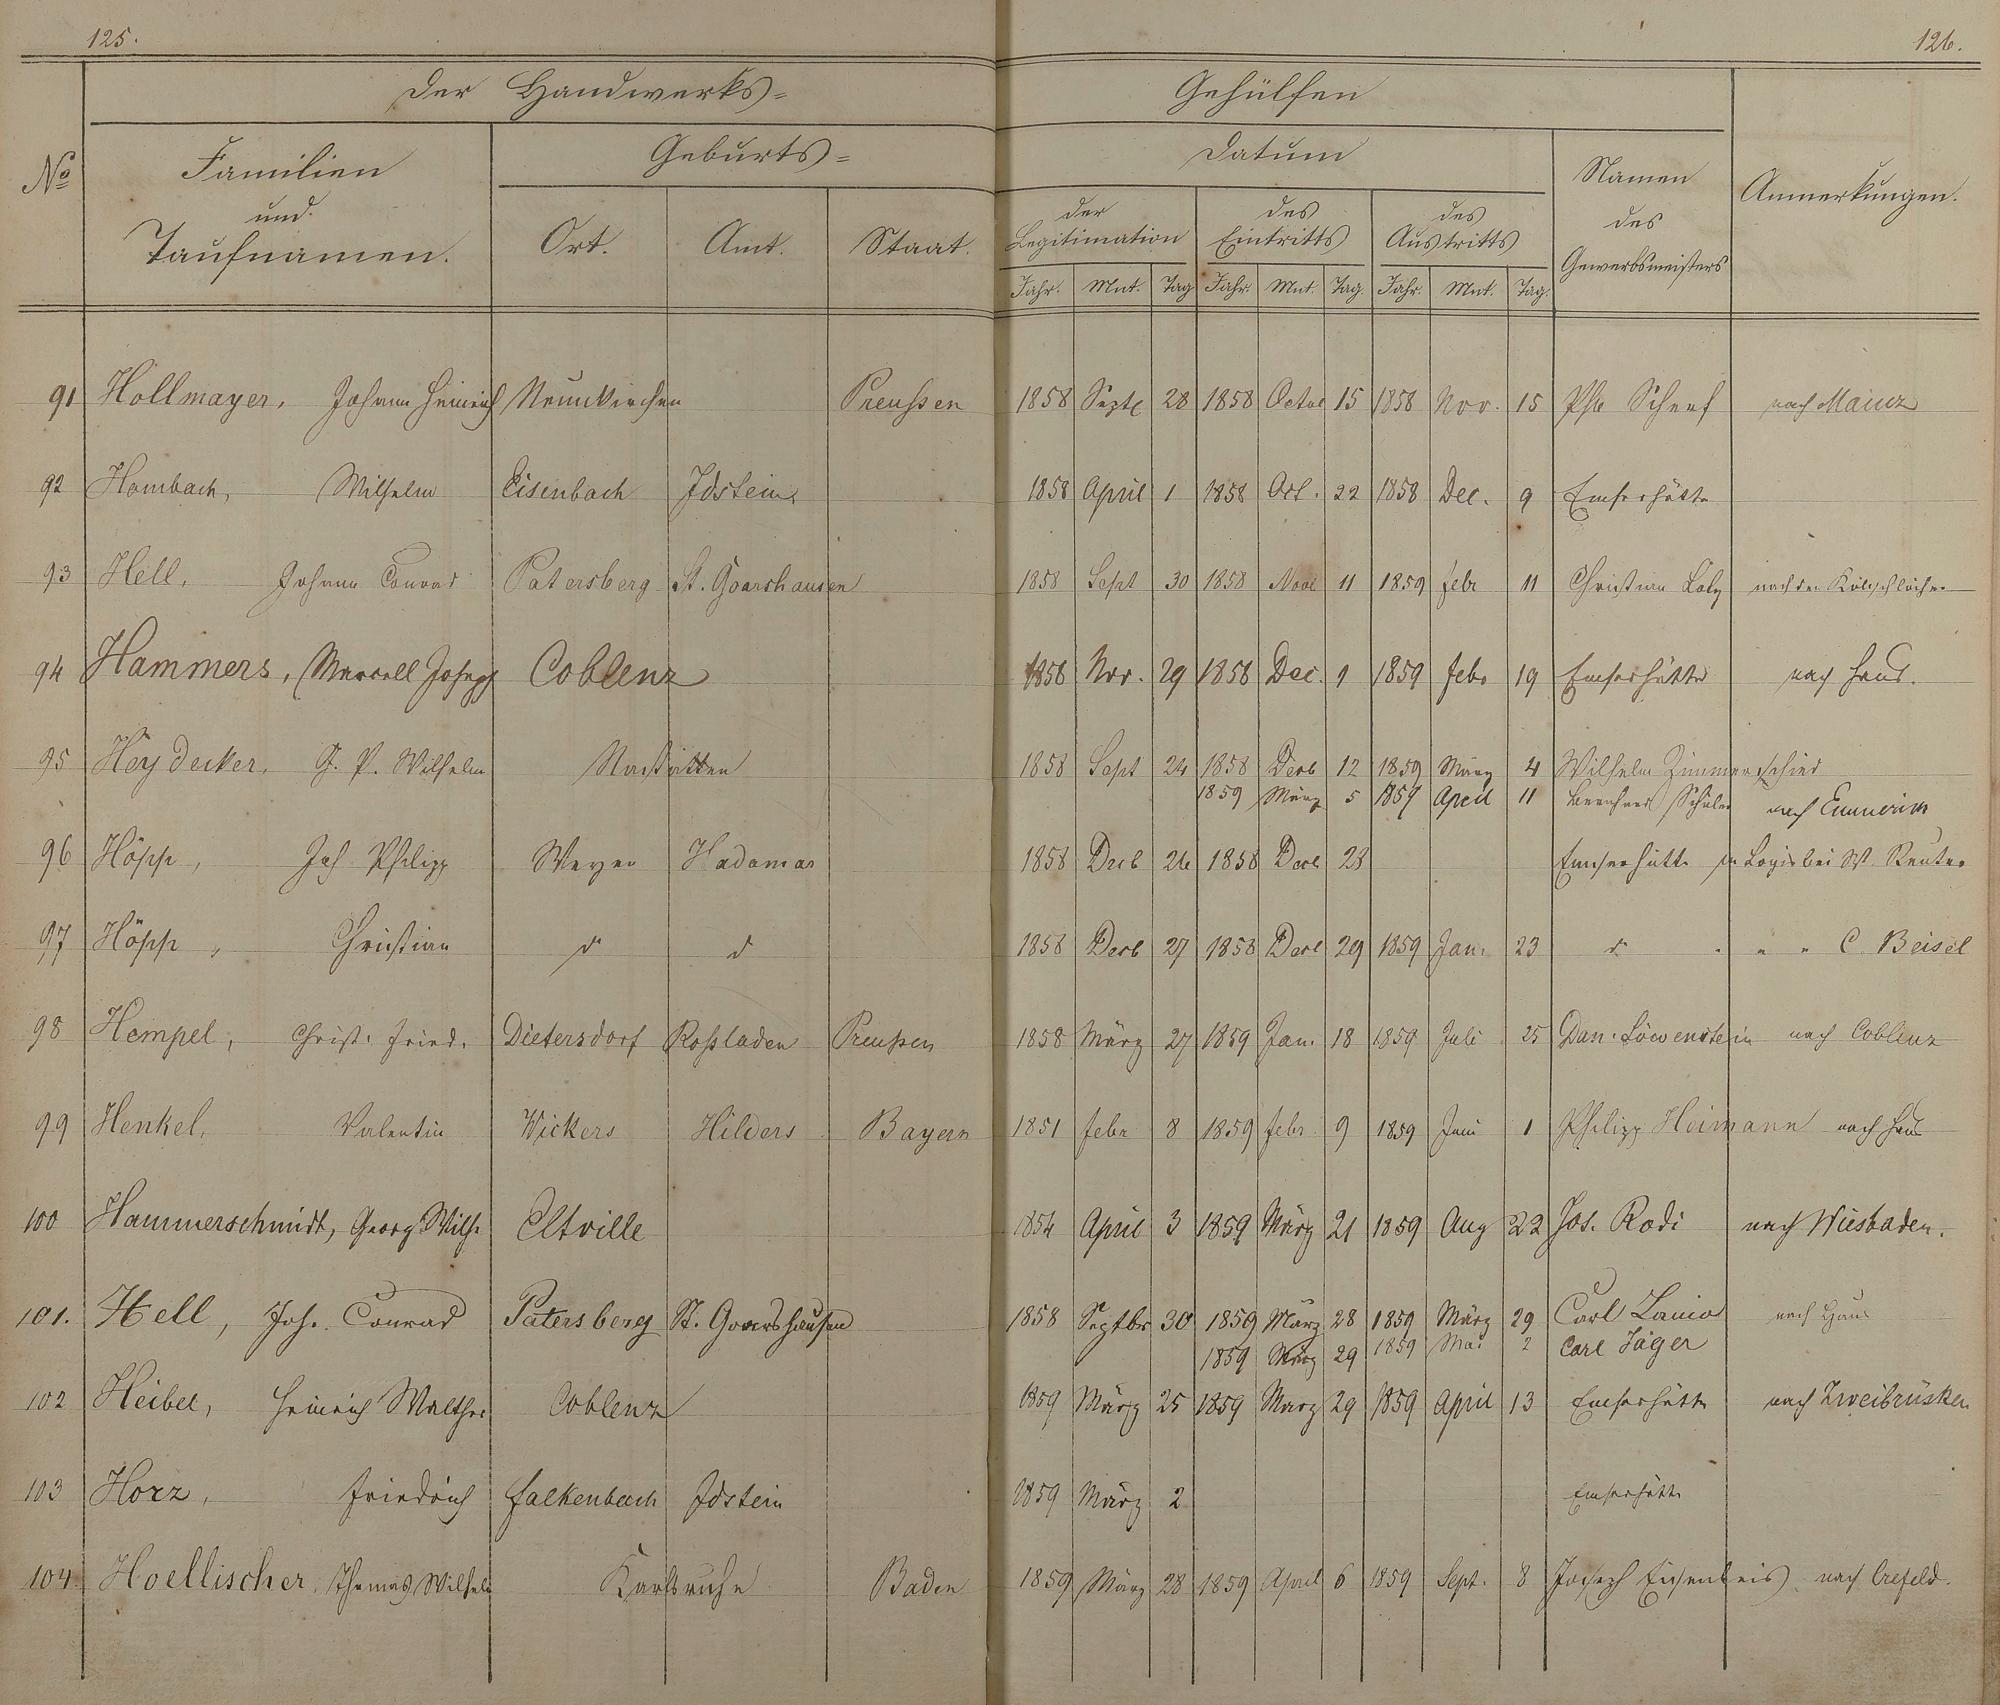 125.
126.
Der Handwerks= Gehülfen
No Familien und Taufnamen. Geburts= Datum Namen des Gewerbsmeisters Anmerkungen.
Ort. Amt. Staat. der Legitimation des Eintritts des Austritts
Jahr. Mnt. Tag Jahr. Mnt. Tag. Jahr. Mnt. Tag.
91 Hollmayer, Johann Heinrich Neunkirchen Preußen 1858 Septb 28 1858 Octob 15 1858 Nov. 15 Scherf nach Mainz
92 Hombach, Wilhelm Eisenbach Idstein 1858 April 1 1858 Oct. 22 1858 Dec. 9 Emserhütte
93 Hell, Johann Conrad Patersberg St. Goarshausen 1858 Sept 30 1858 Novb 11 1859 Febr 11 Christian nach den
94 Hammers, Marcell Joseph Coblenz 1858 Nov. 29 1858 Dec. 9 1859 Febr 19 Emserhütte nach Haus.
95 Heydecker, G. P. Wilhelm Nastätten 1858 Sept 24 1858 Decb 12 1859 März 4 Wilhelm Zimmerschied
1859 März 5 1859 April 11 Schuler nach
96 Höpp, Joh Philipp Weyer Hadamar 1858 Decb 26 1858 Decb 28 Emserhütte in Logis bei W. Reuter
97 Höpp, Christian do do 1858 Decb 27 1858 Decb 29 1859 Jan. 23 do " " " C. Beisel
98 Hempel, Christ. Fried. Dietersdorf Roßladen Preußen 1858 März 27 1859 Jan. 18 1859 Juli 25 Dan. Löwenstein nach Coblenz
99 Henkel, Valentin Wickers Hilders Bayern 1851 Febr 8 1859 Febr. 9 1859 Juni 1 Philipp Heimann nach Haus
100 Hammerschmidt, Georg Wilh. Eltville 1854 April 3 1859 März 21 1859 Aug 22 Jos. Rodi nach Wiesbaden.
101. Hell, Joh. Conrad Patersberg St. Goarshausen 1858 Septbr 30 1859 März 28 1859 März 29 Carl Lanio nach Haus
1859 März 29 1859 Mai 2 Carl Jäger
102 Heibel, Heinrich Walther Coblenz 1859 März 25 1859 März 29 1859 April 13 Emserhütte nach Zweibrücken
103 Horz, Friedrich Falkenbach Idstein 1859 März 2 Emserhütte
104. Hoellischer, Thomas Wilhelm Karlsruhe Baden 1859 März 28 1859 April 6 1859 Sept. 8 Joseph Eisenbeis nach Crefeld.